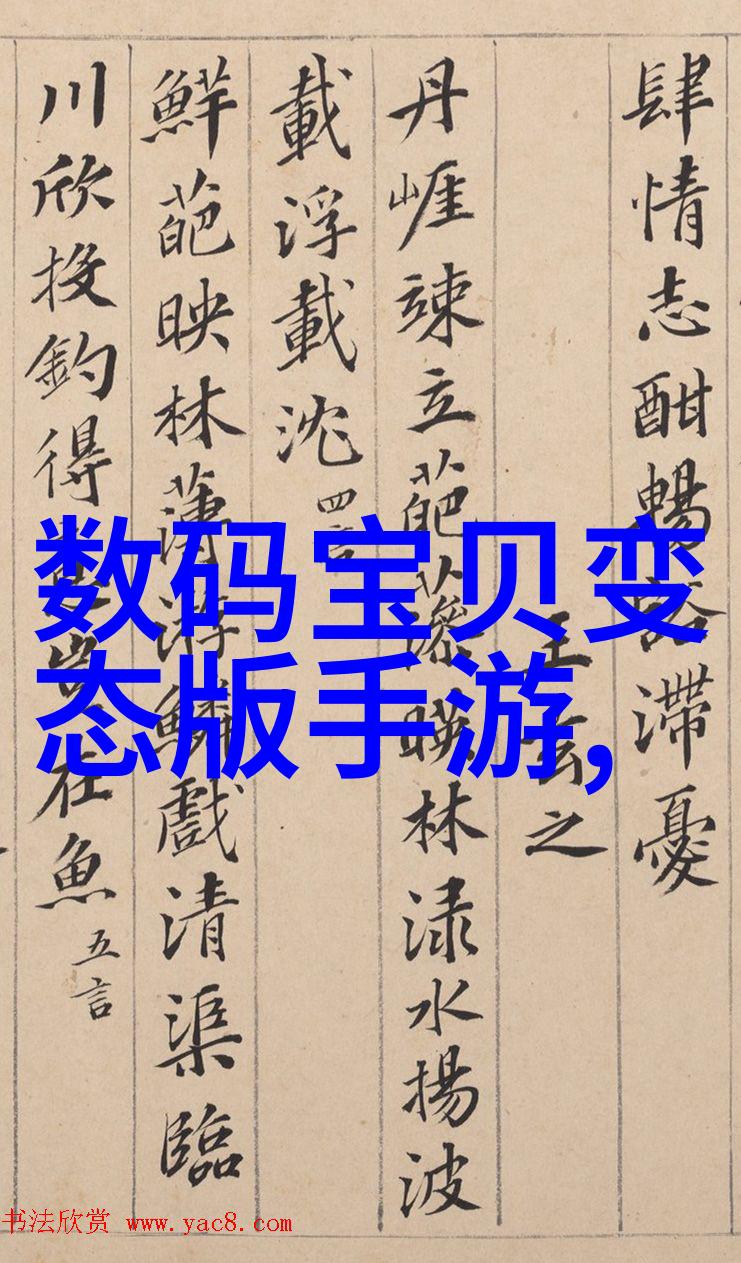 肆情志酣暢豁滯憂
王玄之
丹崖竦立葩藻暎林渌水揚波
載浮載沈 四言
鮮葩映林薄游鱗戲清渠臨
川欣投釣得意豈在魚 五言
数码宝贝变
态版手游,
书法欣赏 www.yac8.com